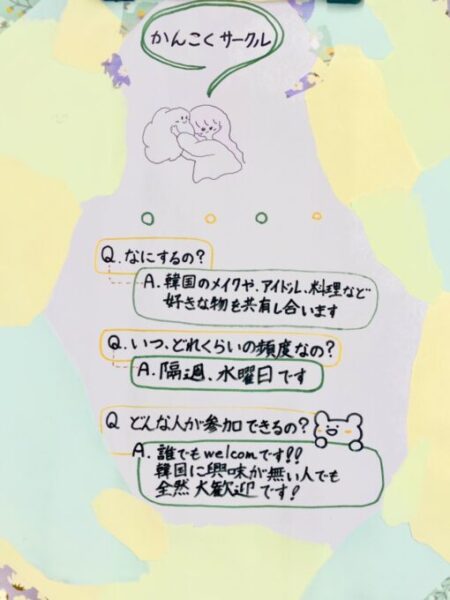 かんこくサークル
Q.なにするの?
A.韓国のメイクや、アイドル、料理など
好きな物を共有し合います
Q.いつ、どれくらいの頻度なの?
A.隔週、水曜日です
Q どんな人が参加できるの?
A.誰でもwelcomです!!
韓国に興味が無い人でも
全然大歓迎です!